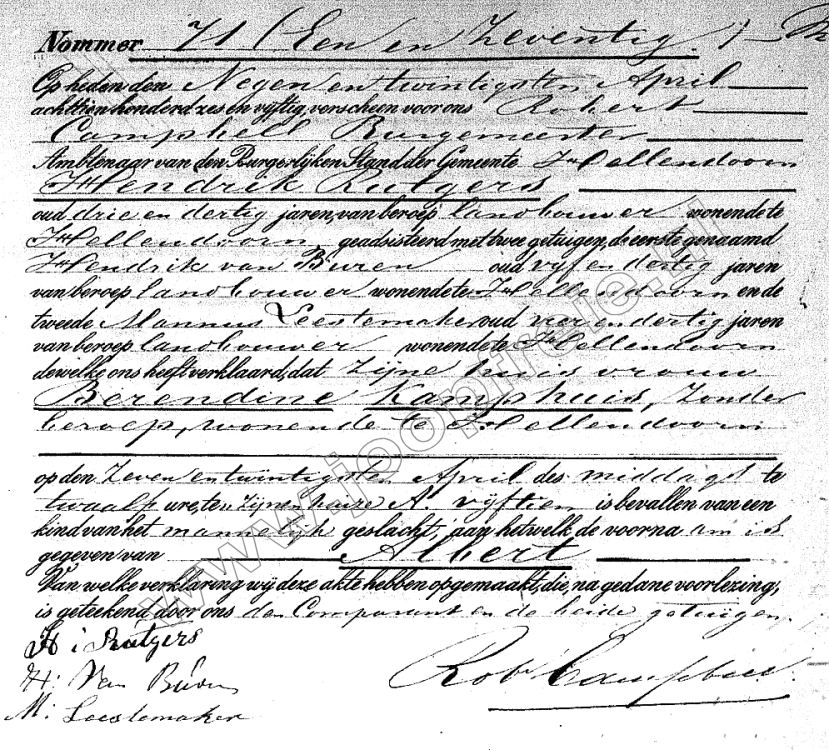 Nommer 71 (Een en Zeventig.)
Op heden den Negen en twintigsten April
achttien honderd zes en vijftig, verscheen voor ons Robert
Campbell Burgemeester
Ambtenaar van den Burgerlijken Stand der Gemeente Hellendoorn
Hendrik Rutgers
oud drie en dertig jaren, van beroep landbouwer wonende te
Hellendoorn, geadsisteerd met twee getuigen, de eerste genaamd
Hendrik van Buren oud vijf en dertig jaren
van beroep landbouwer wonende te Hellendoorn en de
tweede Mannus Leestemaker oud vier en dertig jaren
van beroep landbouwer wonende te Hellendoorn
dewelke ons heeft verklaard, dat Zijne huisvrouw
Berendine Kamphuis, Zonder
beroep, wonende te Hellendoorn
op den Zeven en twintigsten April des middags te
twaalf ure, te zijnen huize A. vijftien is bevallen van een
kind van het mannelijk geslacht, aan hetwelk de voornaam is
gegeven van Albert
Van welke verklaring wij deze akte hebben opgemaakt, die, na gedane voorlezing,
is geteekend door ons den Comparant en de beide getuigen.
H: Rutgers
H: Van Buren
Rob Campbell
M: Leestemaker
www.joopfideel.nl